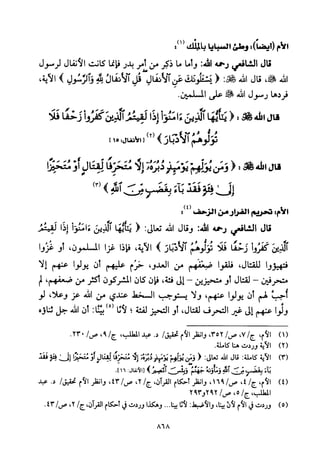 الأم (أيضاً)، وطئ السبايا بالمِلْك (١):
قال الشافعي رحمه الله: وأما ما ذكر من أمر بدر فإنما كانت الأنفال لرسول
الله ﷺ، قال الله ﷻ: ﴿ يَسْـَٔلُونَكَ عَنِ ٱلْأَنفَالِ قُلِ ٱلْأَنفَالُ لِلَّهِ وَٱلرَّسُولِ ﴾ الآية،
فردها رسول الله ﷺ على المسلمين.
قال الله ﷻ: ﴿ يَـٰٓأَيُّهَا ٱلَّذِينَ ءَامَنُوٓا۟ إِذَا لَقِيتُمُ ٱلَّذِينَ كَفَرُوا۟ زَحْفًا فَلَا
تُوَلُّوهُمُ ٱلْأَدْبَارَ ﴾ (٢) [الأنفال: ١٥]
قال الله ﷻ: ﴿ وَمَن يُوَلِّهِمْ يَوْمَئِذٍ دُبُرَهُۥٓ إِلَّا مُتَحَرِّفًا لِّقِتَالٍ أَوْ مُتَحَيِّزًا
إِلَىٰ فِئَةٍ فَقَدْ بَآءَ بِغَضَبٍ مِّنَ ٱللَّهِ ﴾ (٣)
الأم، تحريم الفرار من الزحف (٤):
قال الشافعي رحمه الله: وقال الله تعالى: ﴿ يَـٰٓأَيُّهَا ٱلَّذِينَ ءَامَنُوٓا۟ إِذَا لَقِيتُمُ
ٱلَّذِينَ كَفَرُوا۟ زَحْفًا فَلَا تُوَلُّوهُمُ ٱلْأَدْبَارَ ﴾ الآية، فإذا غزا المسلمون، أو غُزُوا
فتهيؤوا للقتال، فلقوا ضعفهم من العدو، حَرُم عليهم أن يولوا عنهم إلا
متحرفين – لقتال أو متحيزين – إلى فئة، فإن كان المشركون أكثر من ضعفهم، لم
أُحِبُّ لهم أن يولوا عنهم، ولا يستوجب السخط عندي من الله عز وعلا، لو
ولّوا عنهم إلى غير التحرف لقتال، أو التحيز لفئة؛ لأنَّا (٥) بيّنَّا: أن الله جل ثناؤه
(١) الأم، ج/٧، ص/٣٥٢، وانظر الأم تحقيق/ د. عبد المطلب، ج/٩، ص/٢٣٠.
(٢) الآية وردت هنا كاملة.
(٣) الآية كاملة: قال الله تعالى: ﴿ وَمَن يُوَلِّهِمْ يَوْمَئِذٍ دُبُرَهُۥٓ إِلَّا مُتَحَرِّفًا لِّقِتَالٍ أَوْ مُتَحَيِّزًا إِلَىٰ فِئَةٍ فَقَدْ
بَآءَ بِغَضَبٍ مِّنَ ٱللَّهِ وَمَأْوَىٰهُ جَهَنَّمُ وَبِئْسَ ٱلْمَصِيرُ ﴾ [الأنفال: ١٦].
(٤) الأم، ج/٤، ص/١٦٩، وانظر أحكام القرآن، ج/٢، ص/٤٣، وانظر الأم تحقيق/ د. عبد
المطلب، ج/٥، ص/٢٩٢ و٢٩٣
(٥) وردت في الأم لأنّ بينّا، والأضبط: لأنّا بينا... وهكذا وردت في أحكام القرآن، ج/٢، ص/٤٣.
٨٦٨